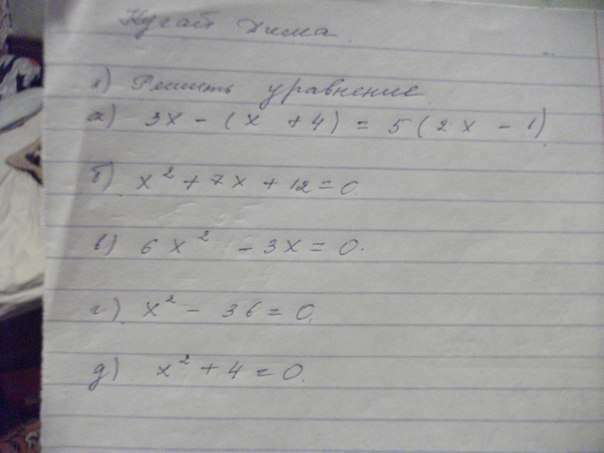 Дима
1) Решить уравнение
а) 3x - (x + 4) = 5(2x - 1)
б) x² + 7x + 12 = 0.
в) 6x² - 3x = 0.
г) x² - 36 = 0.
д) x² + 4 = 0.